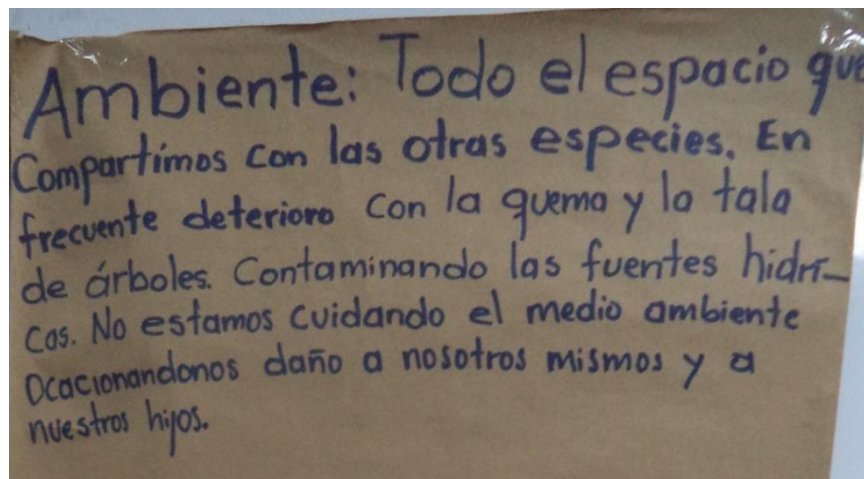 Ambiente: Todo el espacio que
Compartimos con las otras especies. En
frecuente deterioro con la quema y la tala
de árboles. Contaminando las fuentes hidrí-
cas. No estamos cuidando el medio ambiente
Ocacionandonos daño a nosotros mismos y a
nuestros hijos.